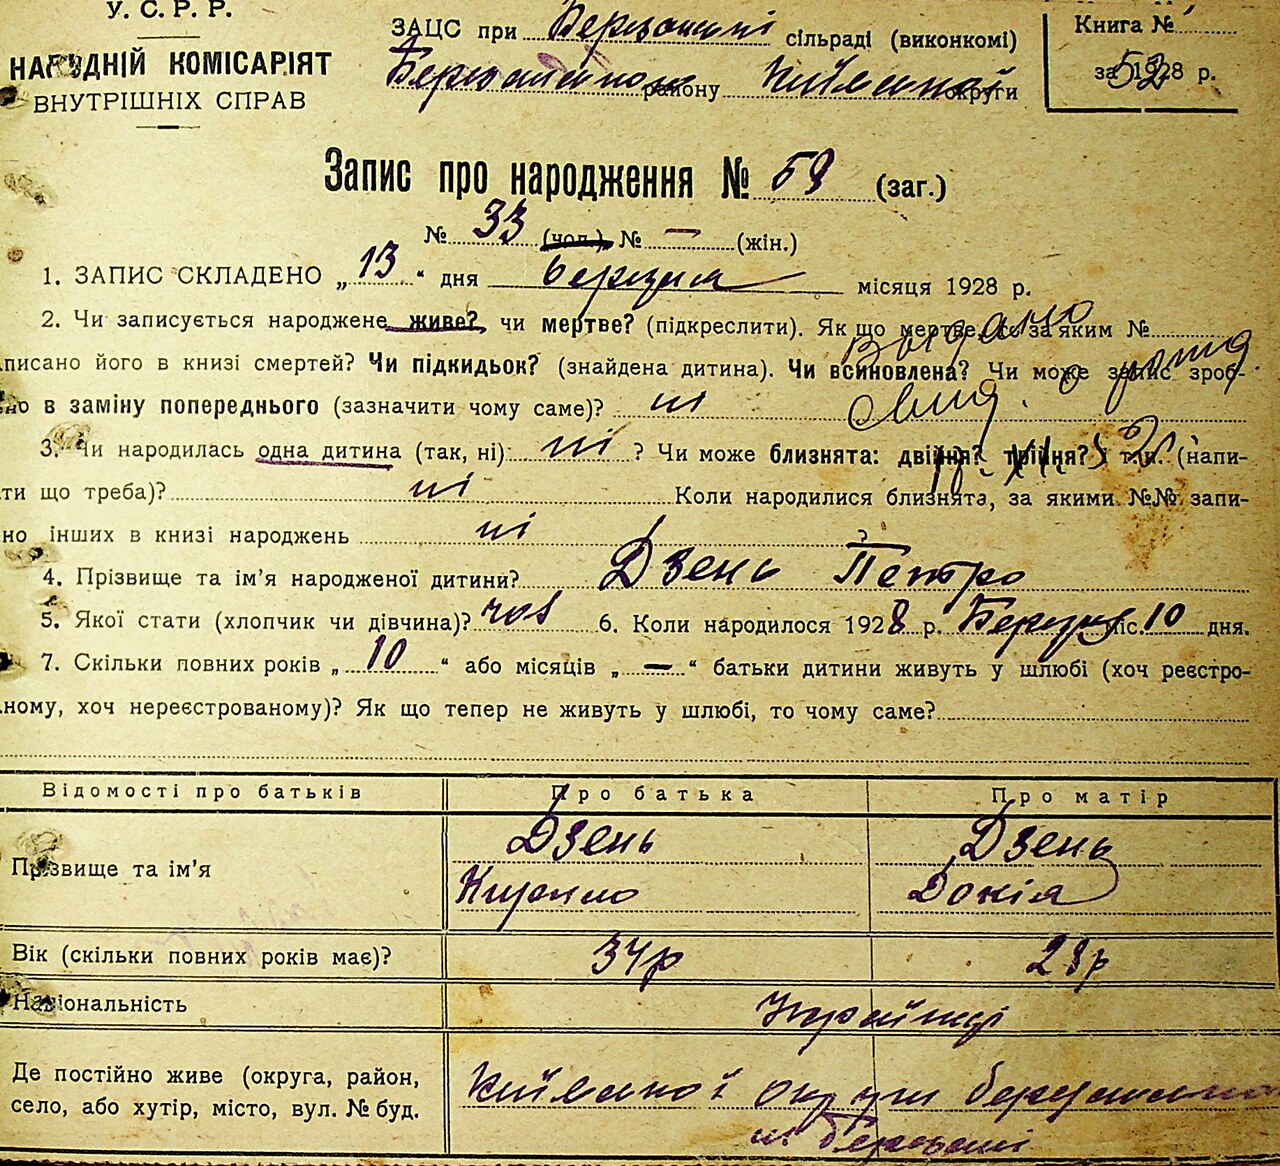 У. С. Р. Р.
НАРОДНІЙ КОМІСАРІЯТ
ВНУТРІШНІХ СПРАВ
ЗАЦС при сільраді (виконкомі)
району округи
Книга №
за 1928 р.
52
Запис про народження № 59 (заг.)
№ 33 (чол.) № — (жін.)
1. ЗАПИС СКЛАДЕНО „ 13 “ дня березня місяця 1928 р.
2. Чи записується народжене живе? чи мертве? (підкреслити). Як що мертве, то за яким №
писано його в книзі смертей? Чи підкидьок? (знайдена дитина). Чи всиновлена? Чи може запис зроб-
но в заміну попереднього (зазначити чому саме)? ні
Видано
3. Чи народилась одна дитина (так, ні): ні ? Чи може близнята: двійня? трійня? і т.п. (напи-
ти що треба)? ні Коли народилися близнята, за якими №№ запи-
но інших в книзі народжень ні ?
4. Прізвище та ім’я народженої дитини? Дзень Петро
5. Якої стати (хлопчик чи дівчина)? чол 6. Коли народилося 1928 р. Березня міс. 10 дня.
7. Скільки повних років „ 10 “ або місяців „ — “ батьки дитини живуть у шлюбі (хоч реєстро-
ному, хоч нереєстрованому)? Як що тепер не живуть у шлюбі, то чому саме?
Відомості про батьків Про батька Про матір
Прізвище та ім’я
Дзень Дзень
Кирило Докія
Вік (скільки повних років має)? 34р 28р
Національність Українці
Де постійно живе (округа, район,
село, або хутір, місто, вул. № буд.
Київської округи